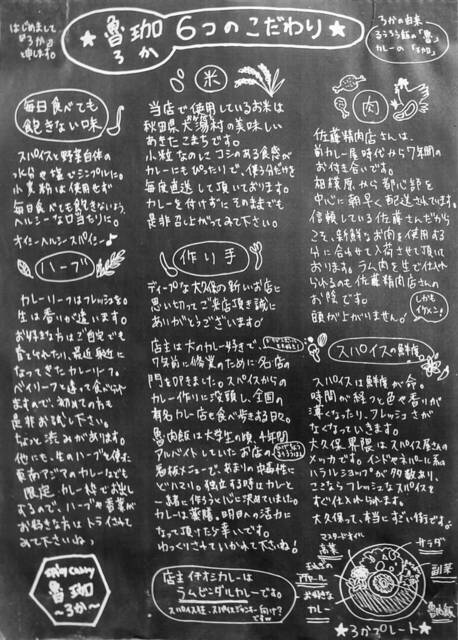 はじめまして
「ろか」
と申します。
★魯珈 6つのこだわり★
ろか
ろかの由来
るうろう飯の「魯」
カレーの「珈」
毎日食べても
飽きない味
スパイスと野菜自体の
水分と塩でシンプルに。
小麦粉は使用せず
毎日食べても飽きないよう、
ヘルシーな口当たりに。
オイシーヘルシースパイシー♪
ハーブ
カレーリーフはフレッシュを。
生は香りが違います。
お好きな方はご自宅でも
育てられたり、最近身近に
なってきたカレーリーフ。
ベイリーフと違って食べられ
ますので、初めての方も
是非お試し下さい。
ちょっと渋みがあります。
他にも、生のハーブを使った
東南アジアのカレーなども
限定カレー枠でお出し
するので、ハーブの香草が
お好きな方はトライされて
みて下さいね♪
spicy curry
魯珈
〜ろか〜
米
当店で使用しているお米は
秋田県大潟村の美味しい
あきたこまちです。
小粒なのにコシのある食感が
カレーにもぴったりで、使う分だけを
毎度直送して頂いております。
カレーを付けずにそのままでも
是非召し上がってみて下さい。
作り手
ディープな大久保の新しいお店に
思い切ってご来店頂き誠に
ありがとうございます!
店主は大のカレー好きで、
7年前に修業のために名店の
門を叩きました。スパイスからの
カレー作りに没頭し、全国の
有名カレー店を食べ歩きる日々。
魯肉飯は大学生の頃、4年間
アルバイトしていたお店の
看板メニューで、あまりの中毒性に
どハマり。独立する時はカレーと
一緒に作ろうと心に決めていました。
カレーは薬膳。明日への活力に
なって頂けたら幸いです。
ゆっくりされていかれて下さいね!
店主イチオシカレーは
ラムビンダルカレーです。
肉
佐藤精肉店さんは、
前カレー屋時代から7年間の
お付き合いです。
相模原から都心部を
中心に朝早く配送されています。
信頼している佐藤さんだから
こそ、新鮮なお肉を使用する
分に合わせて入荷させて頂いて
おります。ラム肉を生で仕入れ
られるのも佐藤精肉店さんの
お陰です。
頭が上がりません。
しかも
イケメン!
スパイスの鮮度
スパイスは鮮度が命。
時間が経つと色や香りが
薄くなったり、フレッシュさが
なくなっていきます。
大久保界隈はスパイス屋さんの
メッカです。インドやネパール系の
ハラルショップが多数あり、
ここならフレッシュなスパイスを
すぐ仕入れられます。
大久保って、本当にすごい街です。
マスタードオイル
高菜
サラダ
副菜
アチャール
お好きな
カレー
魯肉飯
★ろかプレート★